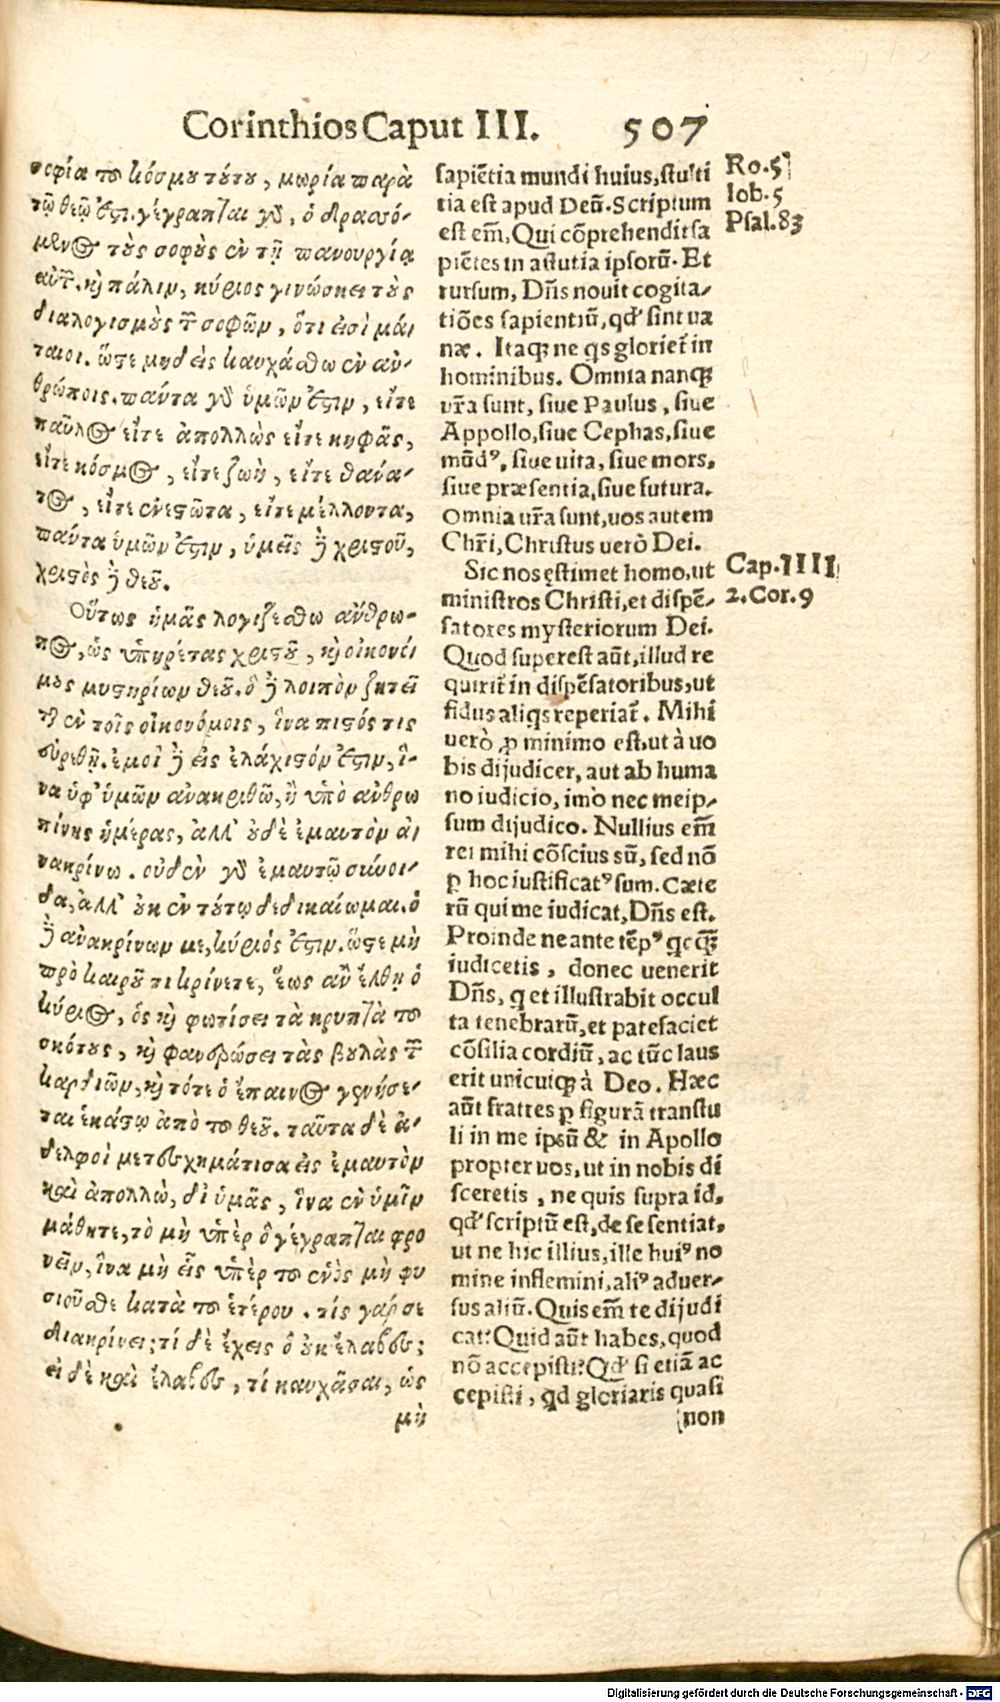 Corinthios Caput III. 507
σοφία τοῦ κόσμου τούτου, μωρία παρὰ
τῷ θεῷ ἐστι. γέγραπται γὸ, ὁ δρασσό-
μενος τοὺς σοφοὺς ἐν τῇ πανουργίᾳ
αὐτῶν. καὶ πάλιν, κύριος γινώσκει τοὺς
διαλογισμοὺς τῶν σοφῶν, ὅτι εἰσὶ μάι
ταιοι. ὥστε μηδεὶς καυχάσθω ἐν ἀν-
θρώποις. πάντα γὸ ὑμῶν ἐστιν, εἴτε
παῦλος εἴτε ἀπολλὼς εἴτε κηφᾶς,
εἴτε κόσμος, εἴτε ζωὴ, εἴτε θάνα-
τος, εἴτε ἐνεστῶτα, εἴτε μέλλοντα,
πάντα ὑμῶν ἐστιν, ὑμεῖς δὲ χριστοῦ,
χριστὸς δὲ θεοῦ.
Οὕτως ἡμᾶς λογιζέσθω ἄνθρω-
πος, ὡς ὑπηρέτας χριστοῦ, καὶ οἰκονό
μους μυστηρίων θεοῦ. ὃ δὲ λοιπὸν ζητεῖ
ται ἐν τοῖς οἰκονόμοις, ἵνα πιστός τις
εὑρεθῇ. ἐμοὶ δὲ εἰς ἐλάχιστόν ἐστιν, ἵ-
να ὑφ' ὑμῶν ἀνακριθῶ, ἢ ὑπὸ ἀνθρω
πίνης ἡμέρας, ἀλλ' οὐδὲ ἐμαυτὸν ἀι
νακρίνω. οὐδὲν γὸ ἐμαυτῷ σύνοι-
δα, ἀλλ' οὐκ ἐν τούτῳ δεδικαίωμαι. ὁ
δὲ ἀνακρίνων με, κύριός ἐστιν. ὥστε μὴ
πρὸ καιροῦ τι κρίνετε, ἕως ἂν ἔλθῃ ὁ
κύριος, ὃς καὶ φωτίσει τὰ κρυπτὰ τοῦ
σκότους, καὶ φανερώσει τὰς βουλὰς τῶν
καρδιῶν, καὶ τότε ὁ ἔπαινος γενήσε-
ται ἑκάστῳ ἀπὸ τοῦ θεοῦ. ταῦτα δὲ ἀ-
δελφοὶ μετεσχημάτισα εἰς ἐμαυτὸν
καὶ ἀπολλὼ, δι' ὑμᾶς, ἵνα ἐν ὑμῖν
μάθητε, τὸ μὴ ὑπὲρ ὃ γέγραπται φρο
νεῖν, ἵνα μὴ εἷς ὑπὲρ τοῦ ἑνὸς μὴ φυ
σιοῦσθε κατὰ τοῦ ἑτέρου. τίς γάρ σε
διακρίνει; τί δὲ ἔχεις ὃ οὐκ ἔλαβες;
εἰ δὲ καὶ ἔλαβες, τί καυχᾶσαι, ὡς
μὴ
sapiẽtia mundi huius, stulti
tia est apud Deũ. Scriptum
est em̃, Qui cõprehendit sa
piẽtes in astutia ipsorũ. Et
rursum, Dñs novit cogita-
tiões sapientiũ, qd' sint ua
næ. Itaqȝ ne qs gloriet̃ in
hominibus. Omnia nanqȝ
ur̃a sunt, siue Paulus, siue
Appollo, siue Cephas, siue
mũdꝰ, siue uita, siue mors,
siue præsentia, siue futura.
Omnia ur̃a sunt, uos autem
Chr̃i, Christus uerò Dei.
Sic nos ęstimet homo, ut
ministros Christi, et dispẽ-
satores mysteriorum Dei.
Quod superest aũt, illud re
quirit̃ in dispẽsatoribus, ut
fidus aliqs reperiat̃. Mihi
uerò ꝓ minimo est, ut à uo
bis dijudicer, aut ab huma
no iudicio, imò nec meip-
sum dijudico. Nullius em̃
rei mihi cõscius sũ, sed nõ
ꝑ hoc iustificatꝰ sum. Cæte
rũ qui me iudicat, Dñs est.
Proinde ne ante tẽpꝰ qcq̃ȝ
iudicetis, donec uenerit
Dñs, q et illustrabit occul
ta tenebrarũ, et patefaciet
cõsilia cordiũ, ac tũc laus
erit unicuiqȝ à Deo. Hæc
aũt fratres ꝑ figurã transtu
li in me ipsũ & in Apollo
propter uos, ut in nobis di
sceretis, ne quis supra id,
qd' scriptũ est, de se sentiat,
ut ne hic illius, ille huiꝰ no
mine inflemini, aliꝰ aduer-
sus aliũ. Quis em̃ te dijudi
cat? Quid aũt habes, quod
nõ accepisti? Qd' si etiã ac
cepisti, qd gloriaris quasi
(non
Ro.5
Iob.5
Psal.83
Cap.IIII
2.Cor.9
Digitalisierung gefördert durch die Deutsche Forschungsgemeinschaft - DFG